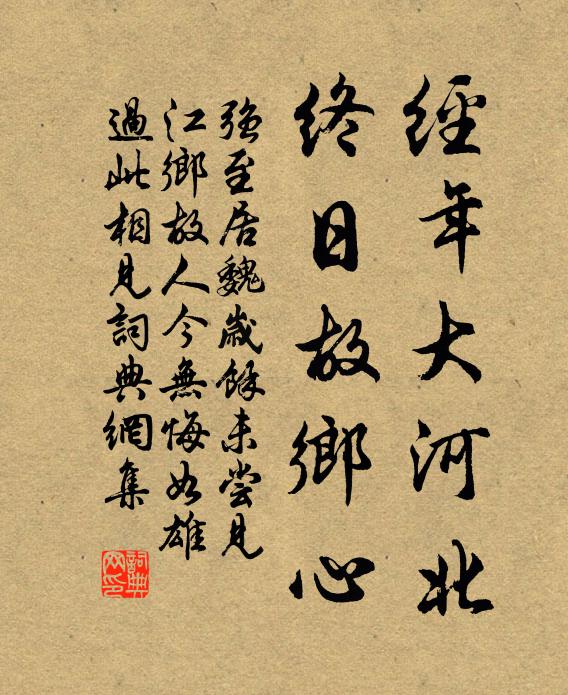 經年大河北
終日故鄉心
强至居魏歲餘未嘗見
江鄉故人今無悔如雄
過此相見詞典網集
詞典网印